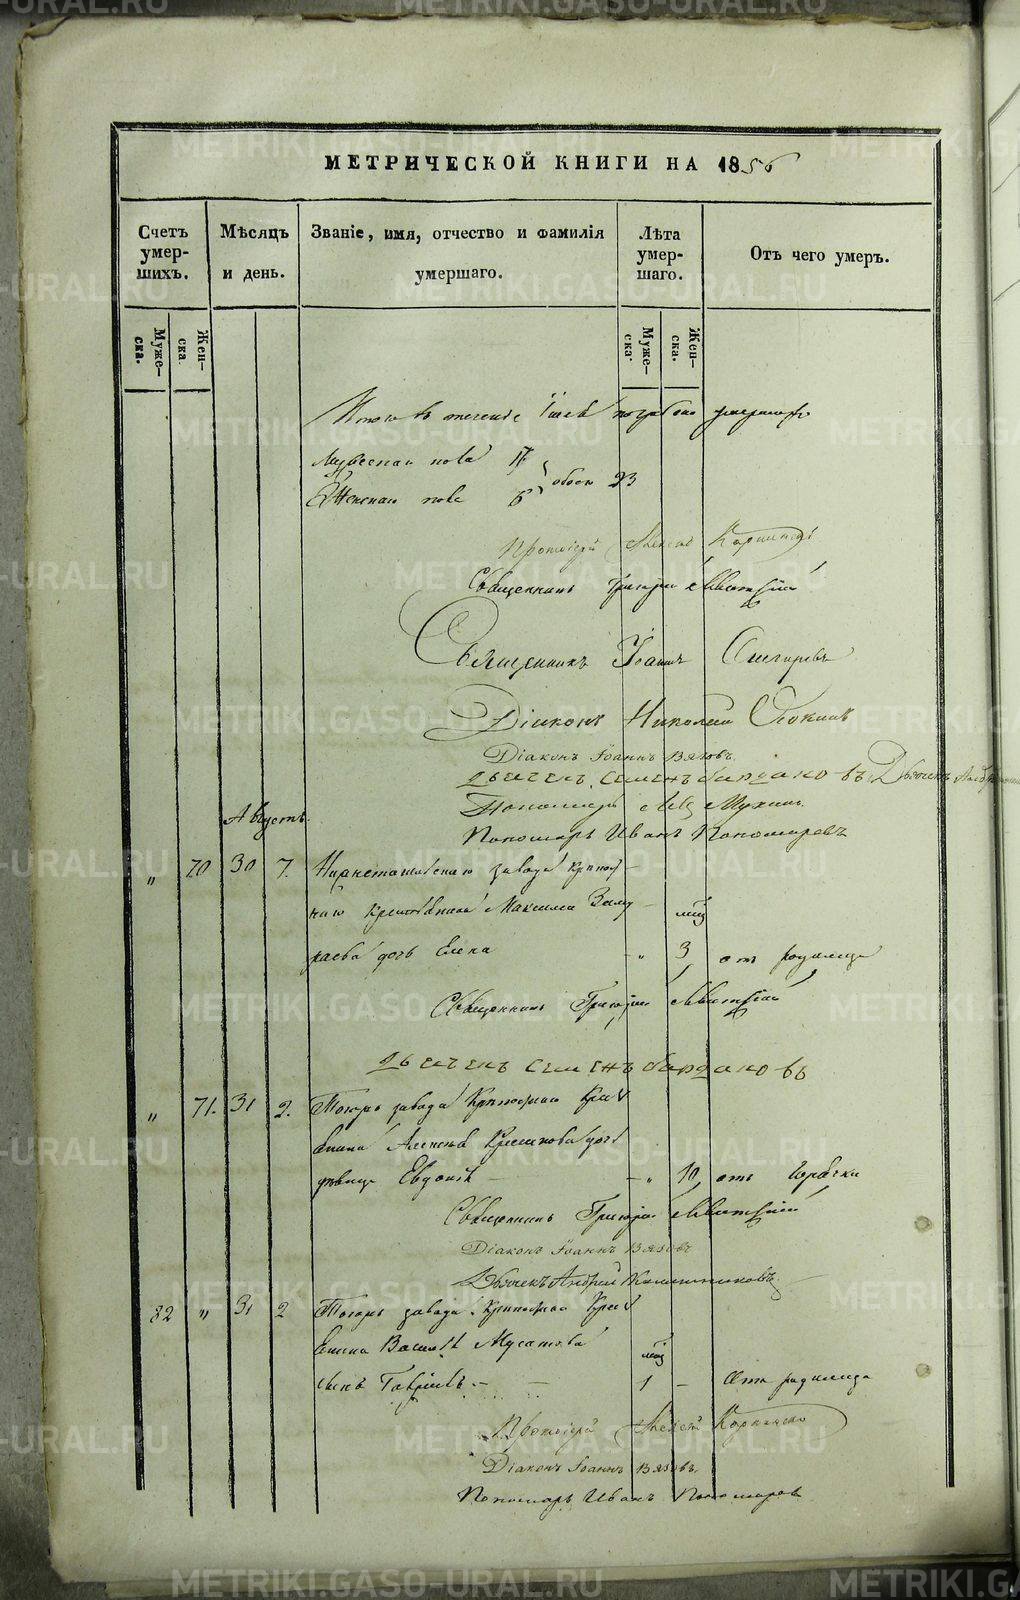 МЕТРИЧЕСКОЙ КНИГИ НА 1856
Счетъ умер-
шихъ.
Мѣсяцъ
и день.
Званіе, имя, отчество и фамилія
умершаго.
Лѣта
умер-
шаго.
Отъ чего умеръ.
Муже-
ска.
Жен-
ска.
Муже-
ска.
Жен-
ска.
Итого въ теченіе Іюля погребено умершихъ
Мужескаго пола 17
Женскаго пола 6
обоего 23
Протоіерей Алексѣй
Священникъ Григорій
Священникъ Іоаннъ Снегиревъ
Діаконъ Николай
Діаконъ Іоаннъ Вязовъ
Дьячекъ Семенъ Бирдяковъ. Дьячекъ
Пономарь Мухинъ
Пономарь Иванъ Пономаревъ
Августъ.
" 70 30 7. завода крѣпост-
наго крестьянина Максима
раева дочь Елена " 3 отъ родимца
Священникъ Григорій
Дьячекъ Семенъ Бирдяковъ
" 71. 31 2. Тогожъ завода крѣпостнаго крес
янина Алексѣя дочь
дѣвица Евдокія " 10 отъ горячки
Священникъ Григорій
Діаконъ Іоаннъ Вязовъ
Дьячекъ Андрей
82 " 31 2 Тогожъ завода крѣпостнаго крес
янина Василья Мусатова
сынъ Гавріилъ 1 – отъ родимца
Протоіерей Алексѣй
Діаконъ Іоаннъ Вязовъ
Пономарь Иванъ Пономаревъ
METRIKI.GASO-URAL.RU